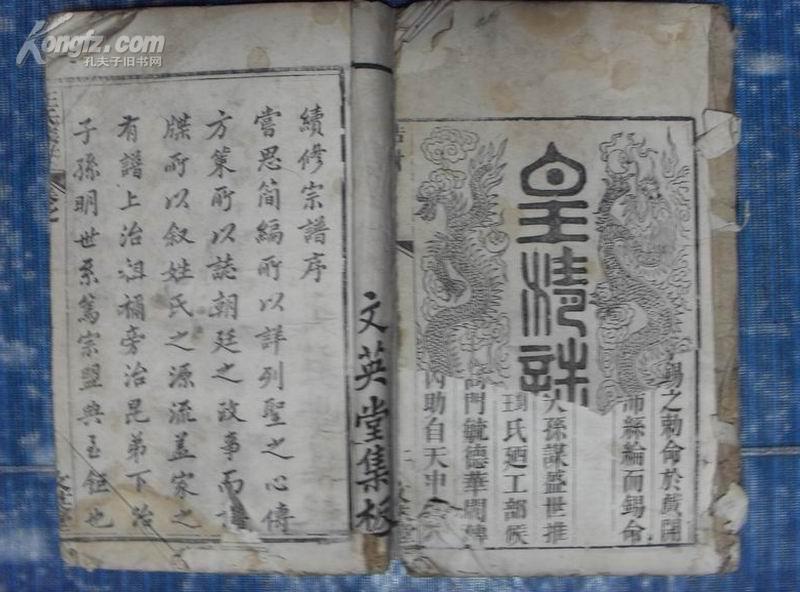 Kongfz.com
孔夫子旧书网
皇清誥
錫之勅命於戲開
沛絲綸而錫命
大孫謀盛世推
氏廼工部候
門毓德華閥傳
內助自天中
文英堂集板
續修宗譜序
嘗思簡編所以詳列聖之心傳
方策所以誌朝廷之政事而
牒所以叙姓氏之源流盖家之
有譜上治祖禰旁治昆弟下治
子孫明世系篤宗盟典至鉅也